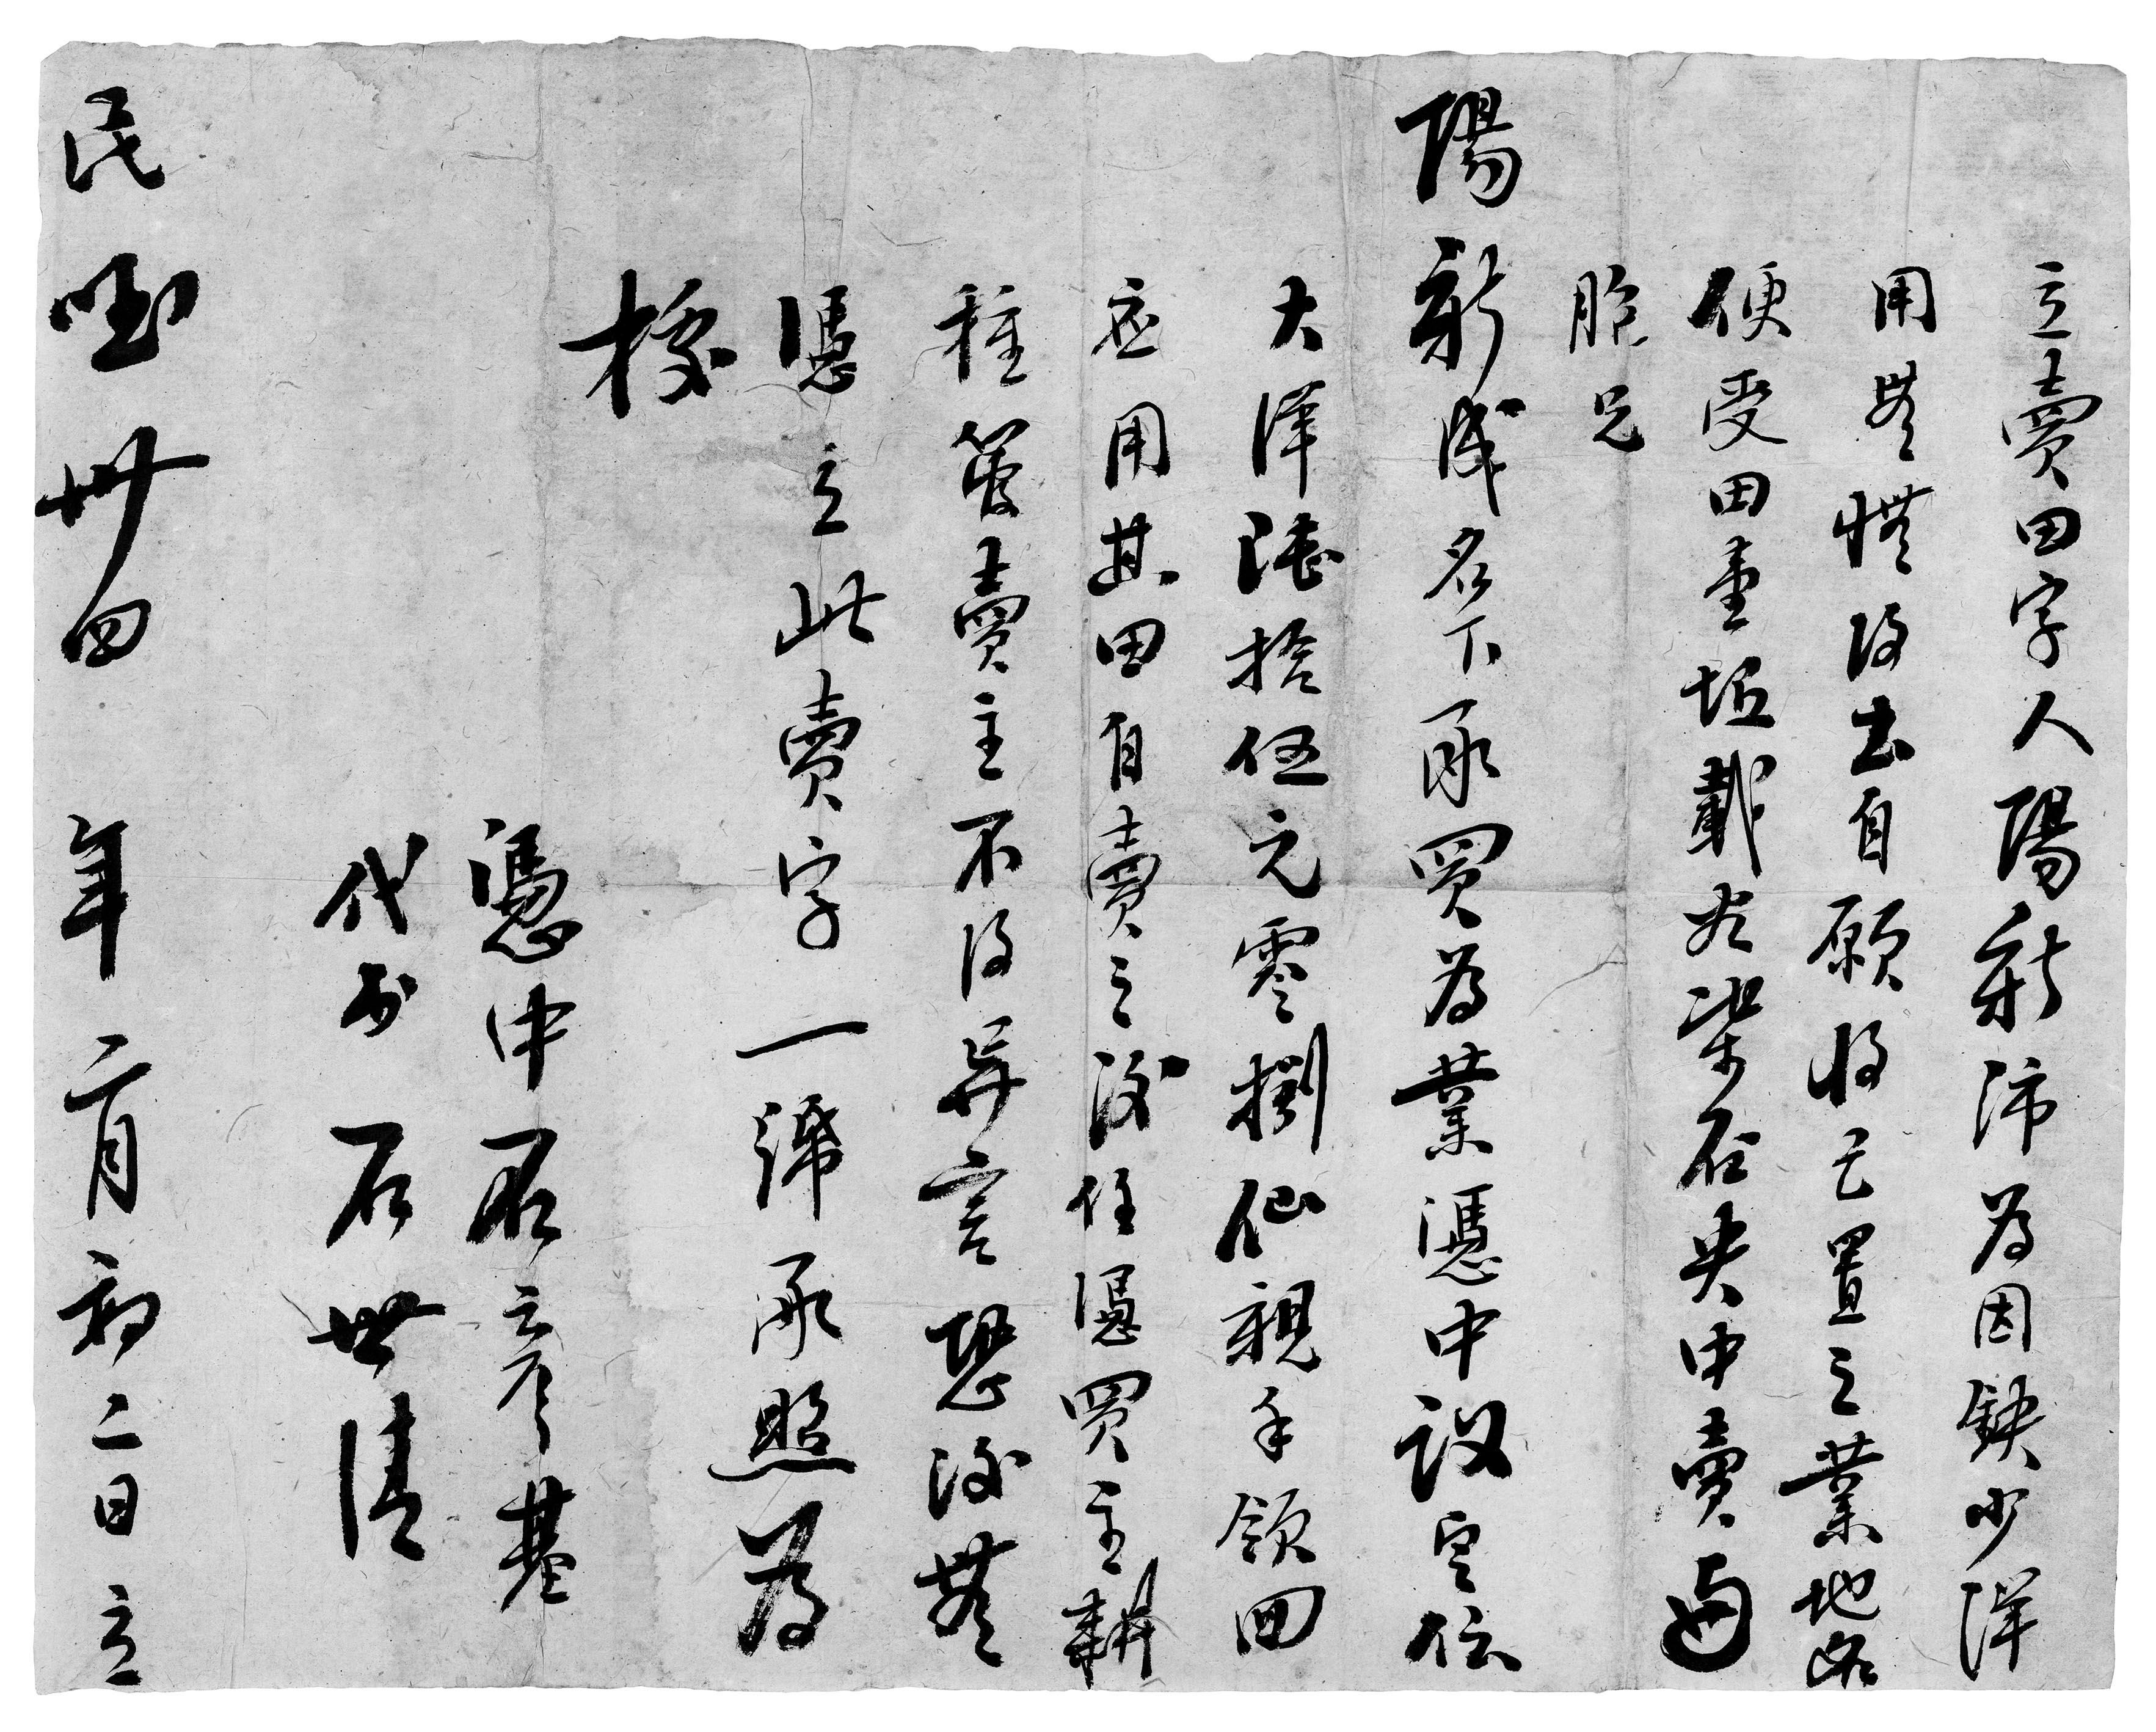 立賣田字人陽新沛為因缺少洋
用無從得出自願將已置之業地名
便受田壹坵載谷柒石央中賣與
胞兄
陽新成名下承買為業憑中議定價
大洋陸拾伍元零捌仙親手領回
应用其田自賣之後任憑買主耕
種管賣主不得异言恐後無
憑立此賣字一𥿄承照為
據
憑中石彥基
代书石世清
民國卅四年二月初二日立